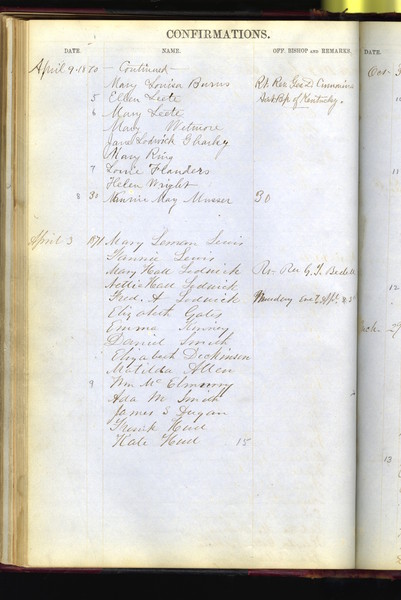 CONFIRMATIONS.
DATE. NAME. OFF. BISHOP AND REMARKS. DATE.
April 9. 1870 — Continued —
Mary Louisa Burns Rt. Rev Geo D Cummins
5 Ellen Leete Asst Bp of Kentucky.
6 Mary Leete
Mary Wetmore
Jane Lodwick
Mary Ring
7 Louie Flanders
Helen Wright
8 30 Minnie May Musser 30
April 3 1871 Mary Leman Lewis
Fannie Lewis
Mary Hall Lodwick Rt. Rev G. T. Bedell
Nellie Hall Lodwick
Fred. A Lodwick Monday
Elizabeth Gates
Emma Kinney
Daniel Smith
Elizabeth Deckinson
Matilda Allen
9 Wm Mc
Ada M Smith
James S Dugan
Hurd
Kate Hurd 15
Oct
11
12
13